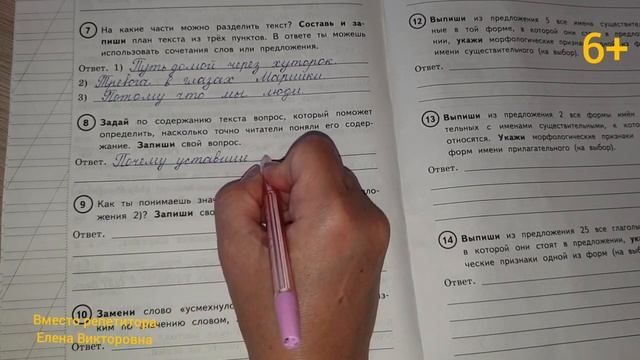 7 На какие части можно разделить текст? Составь и за-
пиши план текста из трёх пунктов. В ответе ты можешь
использовать сочетания слов или предложения.
Ответ. 1) Путь домой через хуторок.
2) Тревога в глазах Марийки.
3) Потому что мы люди
8 Задай по содержанию текста вопрос, который поможет
определить, насколько точно читатели поняли его содер-
жание. Запиши свой вопрос.
Ответ. Почему уставшие
9 Как ты понимаешь знач
жения 2)? Запиши сво
Ответ.
10 Замени слово «усмехнулс
ким по значению словом,
Ответ.
12 Выпиши из предложения 5 все имена существитель-
ные в той форме, в которой они стоят в предло-
нии, укажи морфологические признаки
имени существительного (на выбор).
Ответ.
13 Выпиши из предложения 2 все формы имён
тельных с именами существительными, к кото
относятся. Укажи морфологические признаки
форм имени прилагательного (на выбор).
Ответ.
14 Выпиши из предложения 25 все глаголы
в которой они стоят в предложении, ука
ческие признаки одной из форм (на выбо
Ответ.
6+
Вместо репетитора
Елена Викторовна